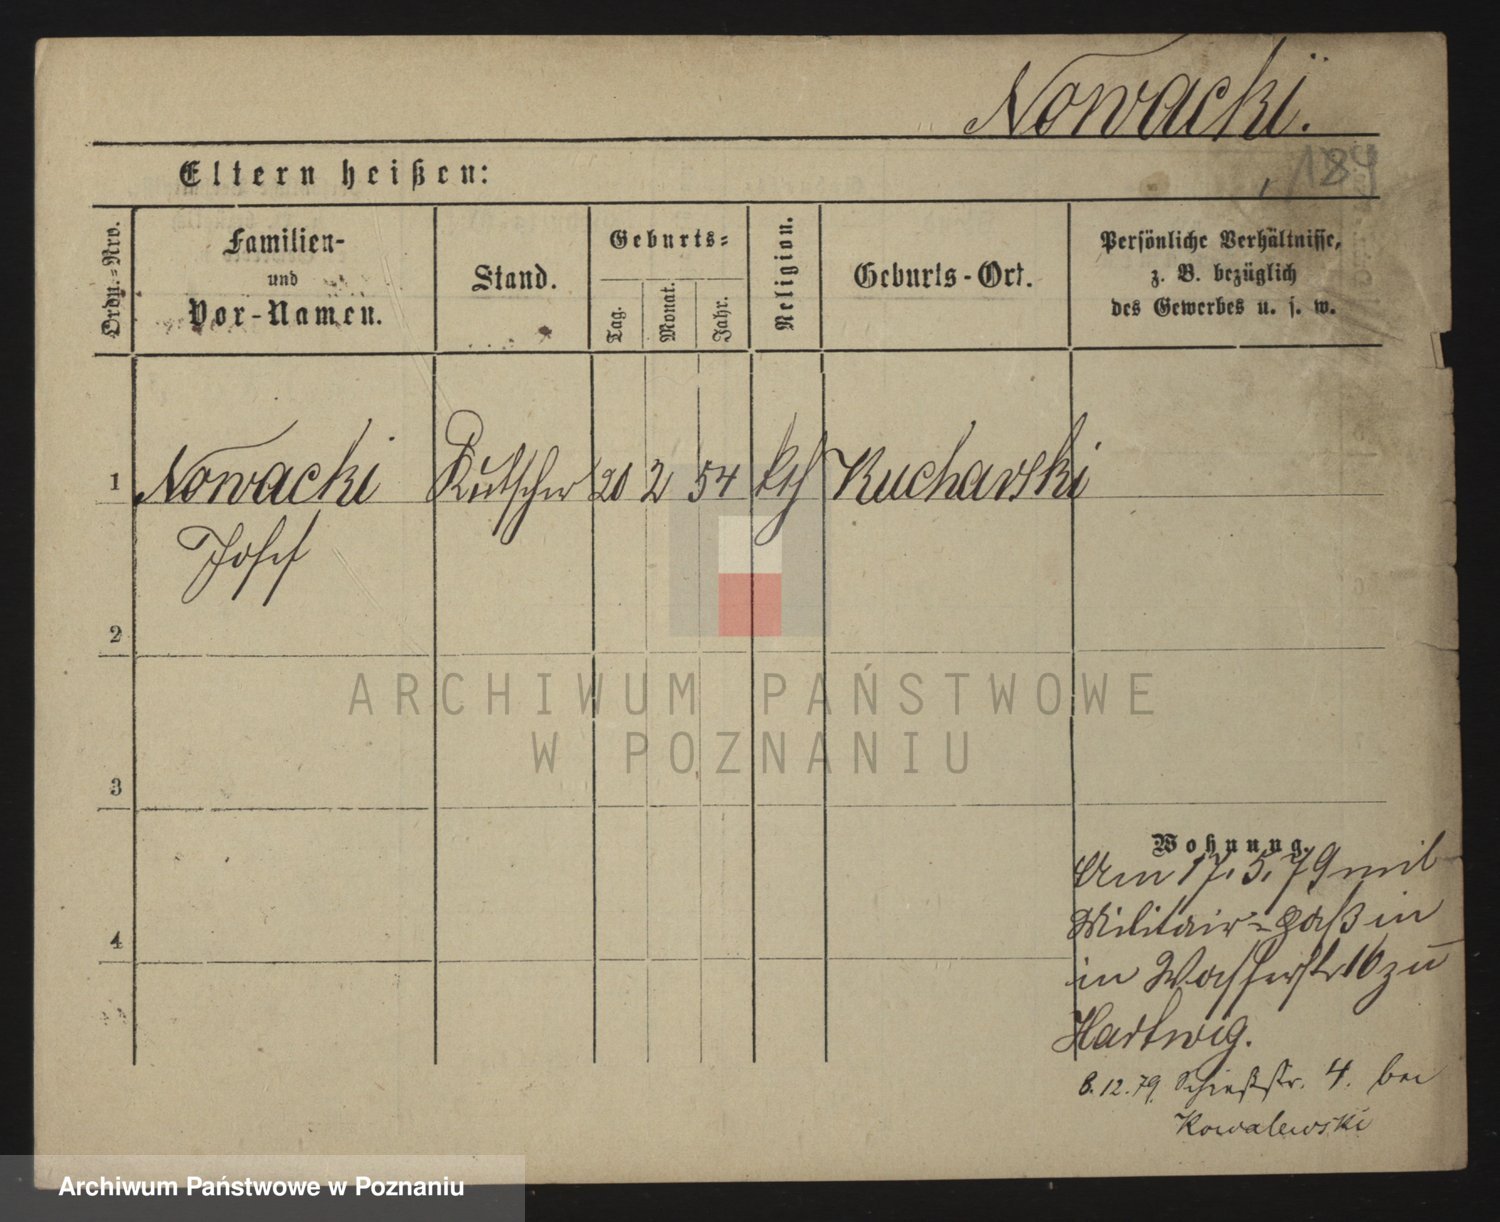 Nowacki.
Eltern heißen:
184
Ordn.=Nro.
Familien-
und
Vor-Namen.
Stand.
Geburts=
Tag.
Monat.
Jahr.
Religion.
Geburts-Ort.
Persönliche Verhältnisse,
z. B. bezüglich
des Gewerbes u. s. w.
1 Nowacki Kutscher 20 2 54 kth Kucharski
Josef
2
3
4
Wohnung.
Am 17.5.79 mit
Militair=Paß in
in Wasserstr 16 zu
Hartwig.
8.12.79. Schießstr. 4. bei
Kowalewski
ARCHIWUM PAŃSTWOWE
W POZNANIU
Archiwum Państwowe w Poznaniu